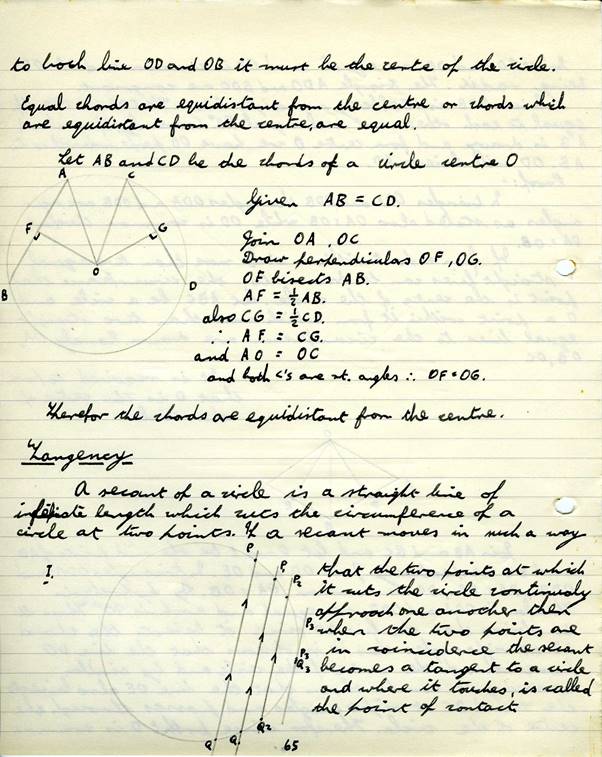 to both line OD and OB it must be the cente of the circle.
Equal chords are equidistant from the centre or chords which
are equidistant from the centre, are equal.
Let AB and CD be the chords of a circle centre O
A C
Given AB = CD.
F G
Join OA, OC
Draw perpendiculars OF, OG.
O
OF bisects AB.
B D
AF = ½ AB.
also CG = ½ CD.
∴ AF = CG.
and AO = OC
and both <'s are rt. angles ∴ OF = OG.
Therefor the chords are equidistant from the centre.
Tangency
A secant of a circle is a straight line of
length which cuts the circumference of a
circle at two points. If a secant moves in such a way
I.
P P P2 P3
that the two points at which
it cuts the circle continualy
approach one another then
when the two points are
in coincidence the secant
P3
Q3
becomes a tangent to a circle
and where it touches, is called
the point of contact
Q Q Q2
65